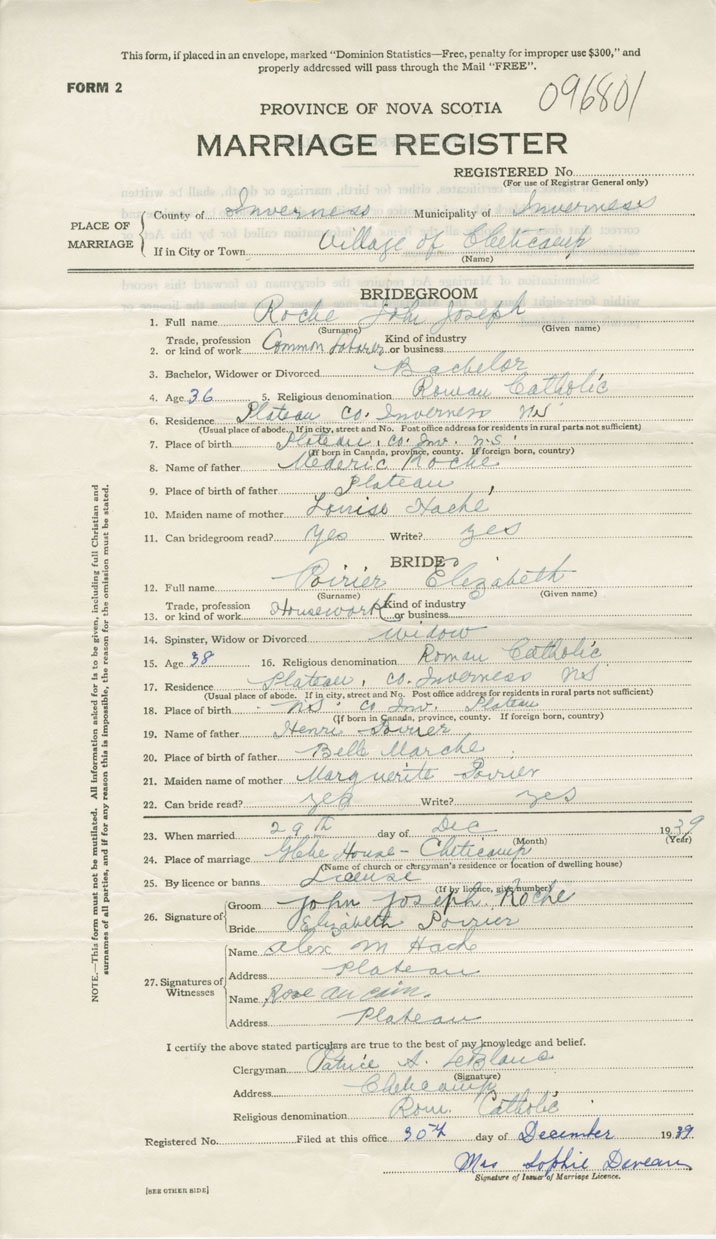 This form, if placed in an envelope, marked "Dominion Statistics—Free, penalty for improper use $300," and
properly addressed will pass through the Mail "FREE".
FORM 2
096801
PROVINCE OF NOVA SCOTIA
MARRIAGE REGISTER
REGISTERED No.
(For use of Registrar General only)
PLACE OF MARRIAGE
County of Inverness Municipality of Inverness
If in City or Town Village of Cheticamp
(Name)
BRIDEGROOM
1. Full name Roche John Joseph
(Surname) (Given name)
2. Trade, profession or kind of work Common Laborer Kind of industry or business
3. Bachelor, Widower or Divorced Bachelor
4. Age 36 5. Religious denomination Roman Catholic
6. Residence Plateau Co. Inverness N.S
(Usual place of abode. If in city, street and No. Post office address for residents in rural parts not sufficient)
7. Place of birth Plateau, Co. Inv. N.S.
(If born in Canada, province, county. If foreign born, country)
8. Name of father Mederic Roche
9. Place of birth of father Plateau
10. Maiden name of mother Louise Haché
11. Can bridegroom read? Yes Write? yes
BRIDE
12. Full name Poirier Elizabeth
(Surname) (Given name)
13. Trade, profession or kind of work Housework Kind of industry or business
14. Spinster, Widow or Divorced widow
15. Age 38 16. Religious denomination Roman Catholic
17. Residence Plateau, Co. Inverness N.S
(Usual place of abode. If in city, street and No. Post office address for residents in rural parts not sufficient)
18. Place of birth N.S. Co Inv. Plateau
(If born in Canada, province, county. If foreign born, country)
19. Name of father Henri Poirier
20. Place of birth of father Belle Marche
21. Maiden name of mother Marguerite Poirier
22. Can bride read? yes Write? yes
23. When married 29th day of Dec 1939
(Month) (Year)
24. Place of marriage Glebe House - Cheticamp
(Name of church or clergyman's residence or location of dwelling house)
25. By licence or banns License
(If by licence, give number)
26. Signature of
Groom John Joseph Roche
Bride Elizabeth Poirier
27. Signatures of Witnesses
Name Alex M Hach
Address Plateau
Name Rose Aucoin.
Address Plateau
I certify the above stated particulars are true to the best of my knowledge and belief.
Clergyman Patrice A. LeBlanc
(Signature)
Address Cheticamp
Religious denomination Rom. Catholic
Registered No. Filed at this office 30th day of December 1939
Mrs Sophie Deveau
Signature of Issuer of Marriage Licence.
[SEE OTHER SIDE]
NOTE.—This form must not be mutilated. All Information asked for is to be given, including full Christian and
surnames of all parties, and if for any reason this is impossible, the reason for the omission must be stated.